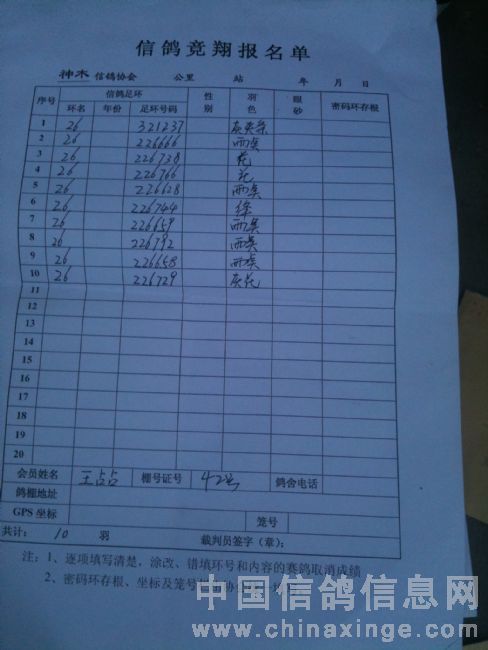 信鸽竞翔报名单
神木 信鸽协会 公里 站 年 月 日
序号 信鸽足环 性别 羽色 眼砂 密码环存根
环名 年份 足环号码
1 26 321237
2 26 226666 雨点
3 26 226738 花
4 26 226766 花
5 26 226628 雨点
6 26 226744 绛
7 26 226659 雨点
8 26 226792 雨点
9 26 226658 雨点
10 26 226729 灰花
11
12
13
14
15
16
17
18
19
20
会员姓名 王占占 棚号证号 42号 鸽舍电话
鸽棚地址
GPS 坐标 笼号
共计: 10 羽 裁判员签字(章):
注:1、逐项填写清楚,涂改、错填环号和内容的赛鸽取消成绩
2、密码环存根、坐标及笼号
中国信鸽信息网
www.chinaxinge.com